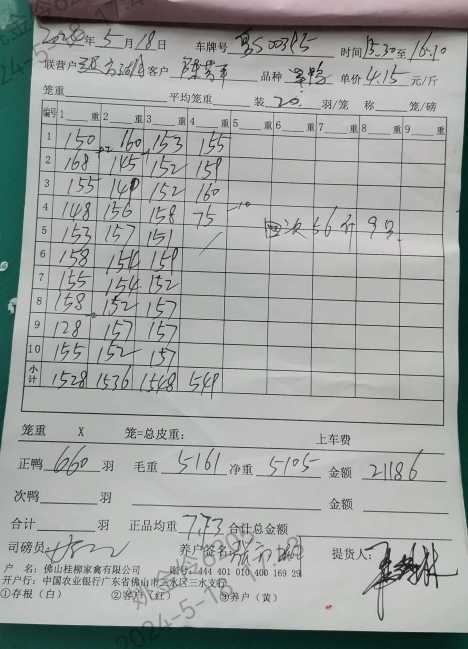 2024年5月18日 车牌号 粤S00395 时间15.30至16.10
联营户 客户 品种 单价4.15元/斤
笼重 平均笼重 装20羽/笼 称 笼/磅
编号 1 重 2 重 3 重 4 重 5 重 6 重 7 重 8 重 9 重
1 150 160 153 155
2 168 145 152 159
3 155 140 152 160
4 148 156 158 75 -10
5 153 157 151
次56斤9只
6 158 154 159
7 155 154 152
8 158 152 157
9 128 157 157
10 155 152 157
小计 1528 1536 1548 549
笼重 X 笼=总皮重: 上车费
正鸭660羽 毛重5161 净重5105 金额21186
次鸭 羽 金额
合计 羽 正品均重7.73 合计总金额
司磅员: 养户签名: 提货人:
户 名:佛山桂柳家禽有限公司 账号:444 401 010 400 169 29
开户行:中国农业银行广东省佛山市三水区三水支行
①存根(白) ②客户(红) ③养户(黄)